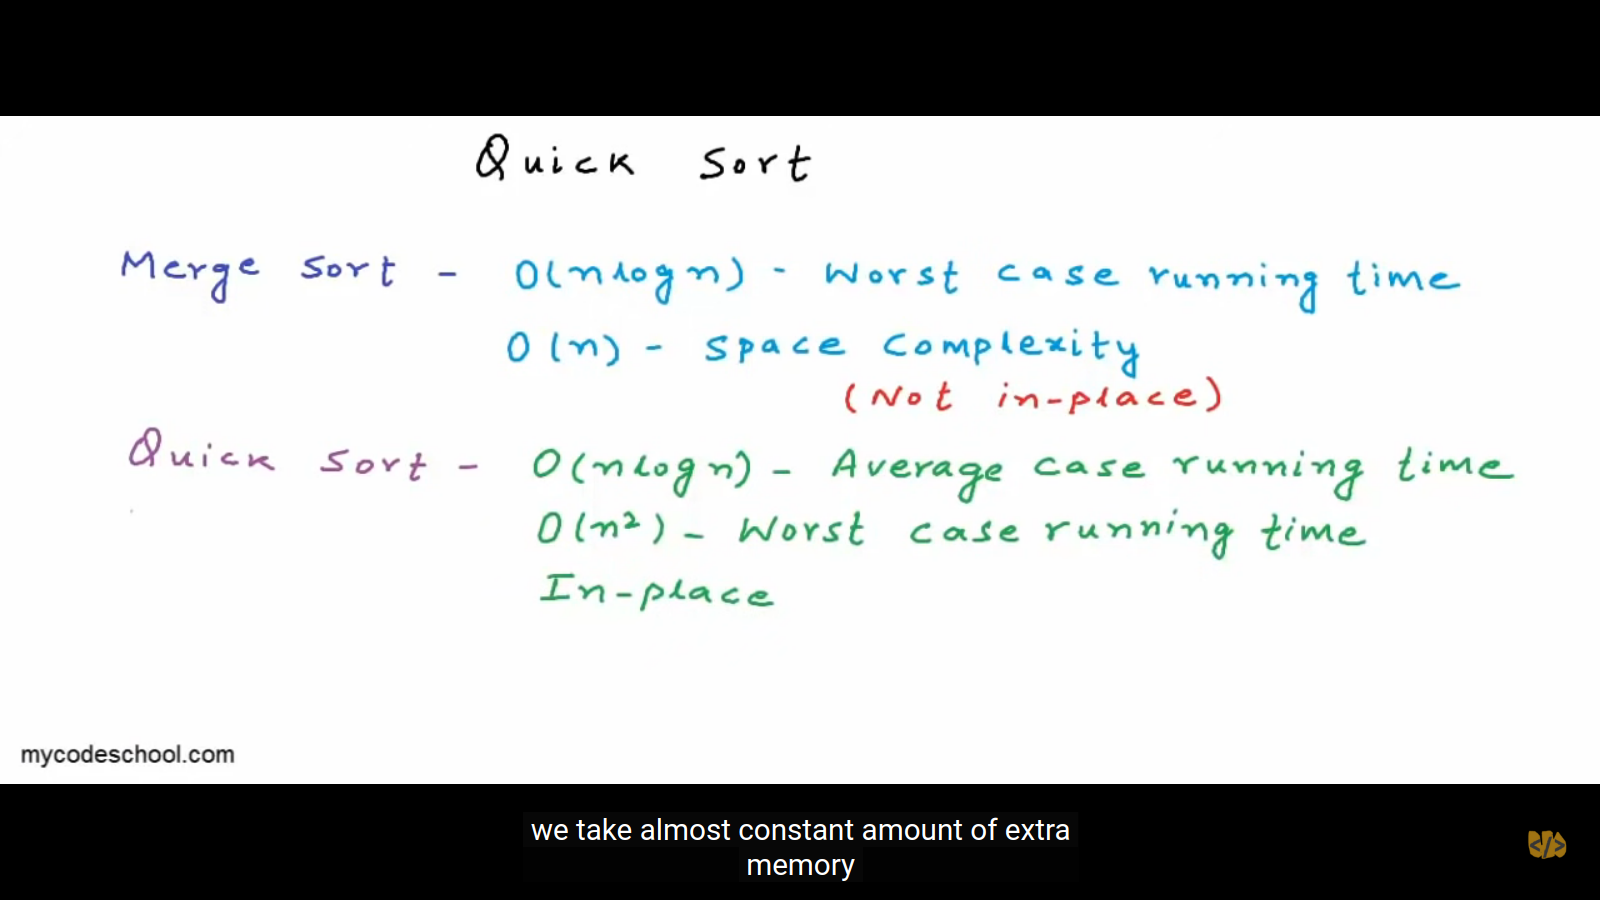 Quick Sort
Merge Sort - O(nlogn) - Worst case running time
O(n) - Space Complexity
(Not in-place)
Quick Sort - O(nlogn) - Average case running time
O(n²) - Worst case running time
In-place
mycodeschool.com
we take almost constant amount of extra
memory